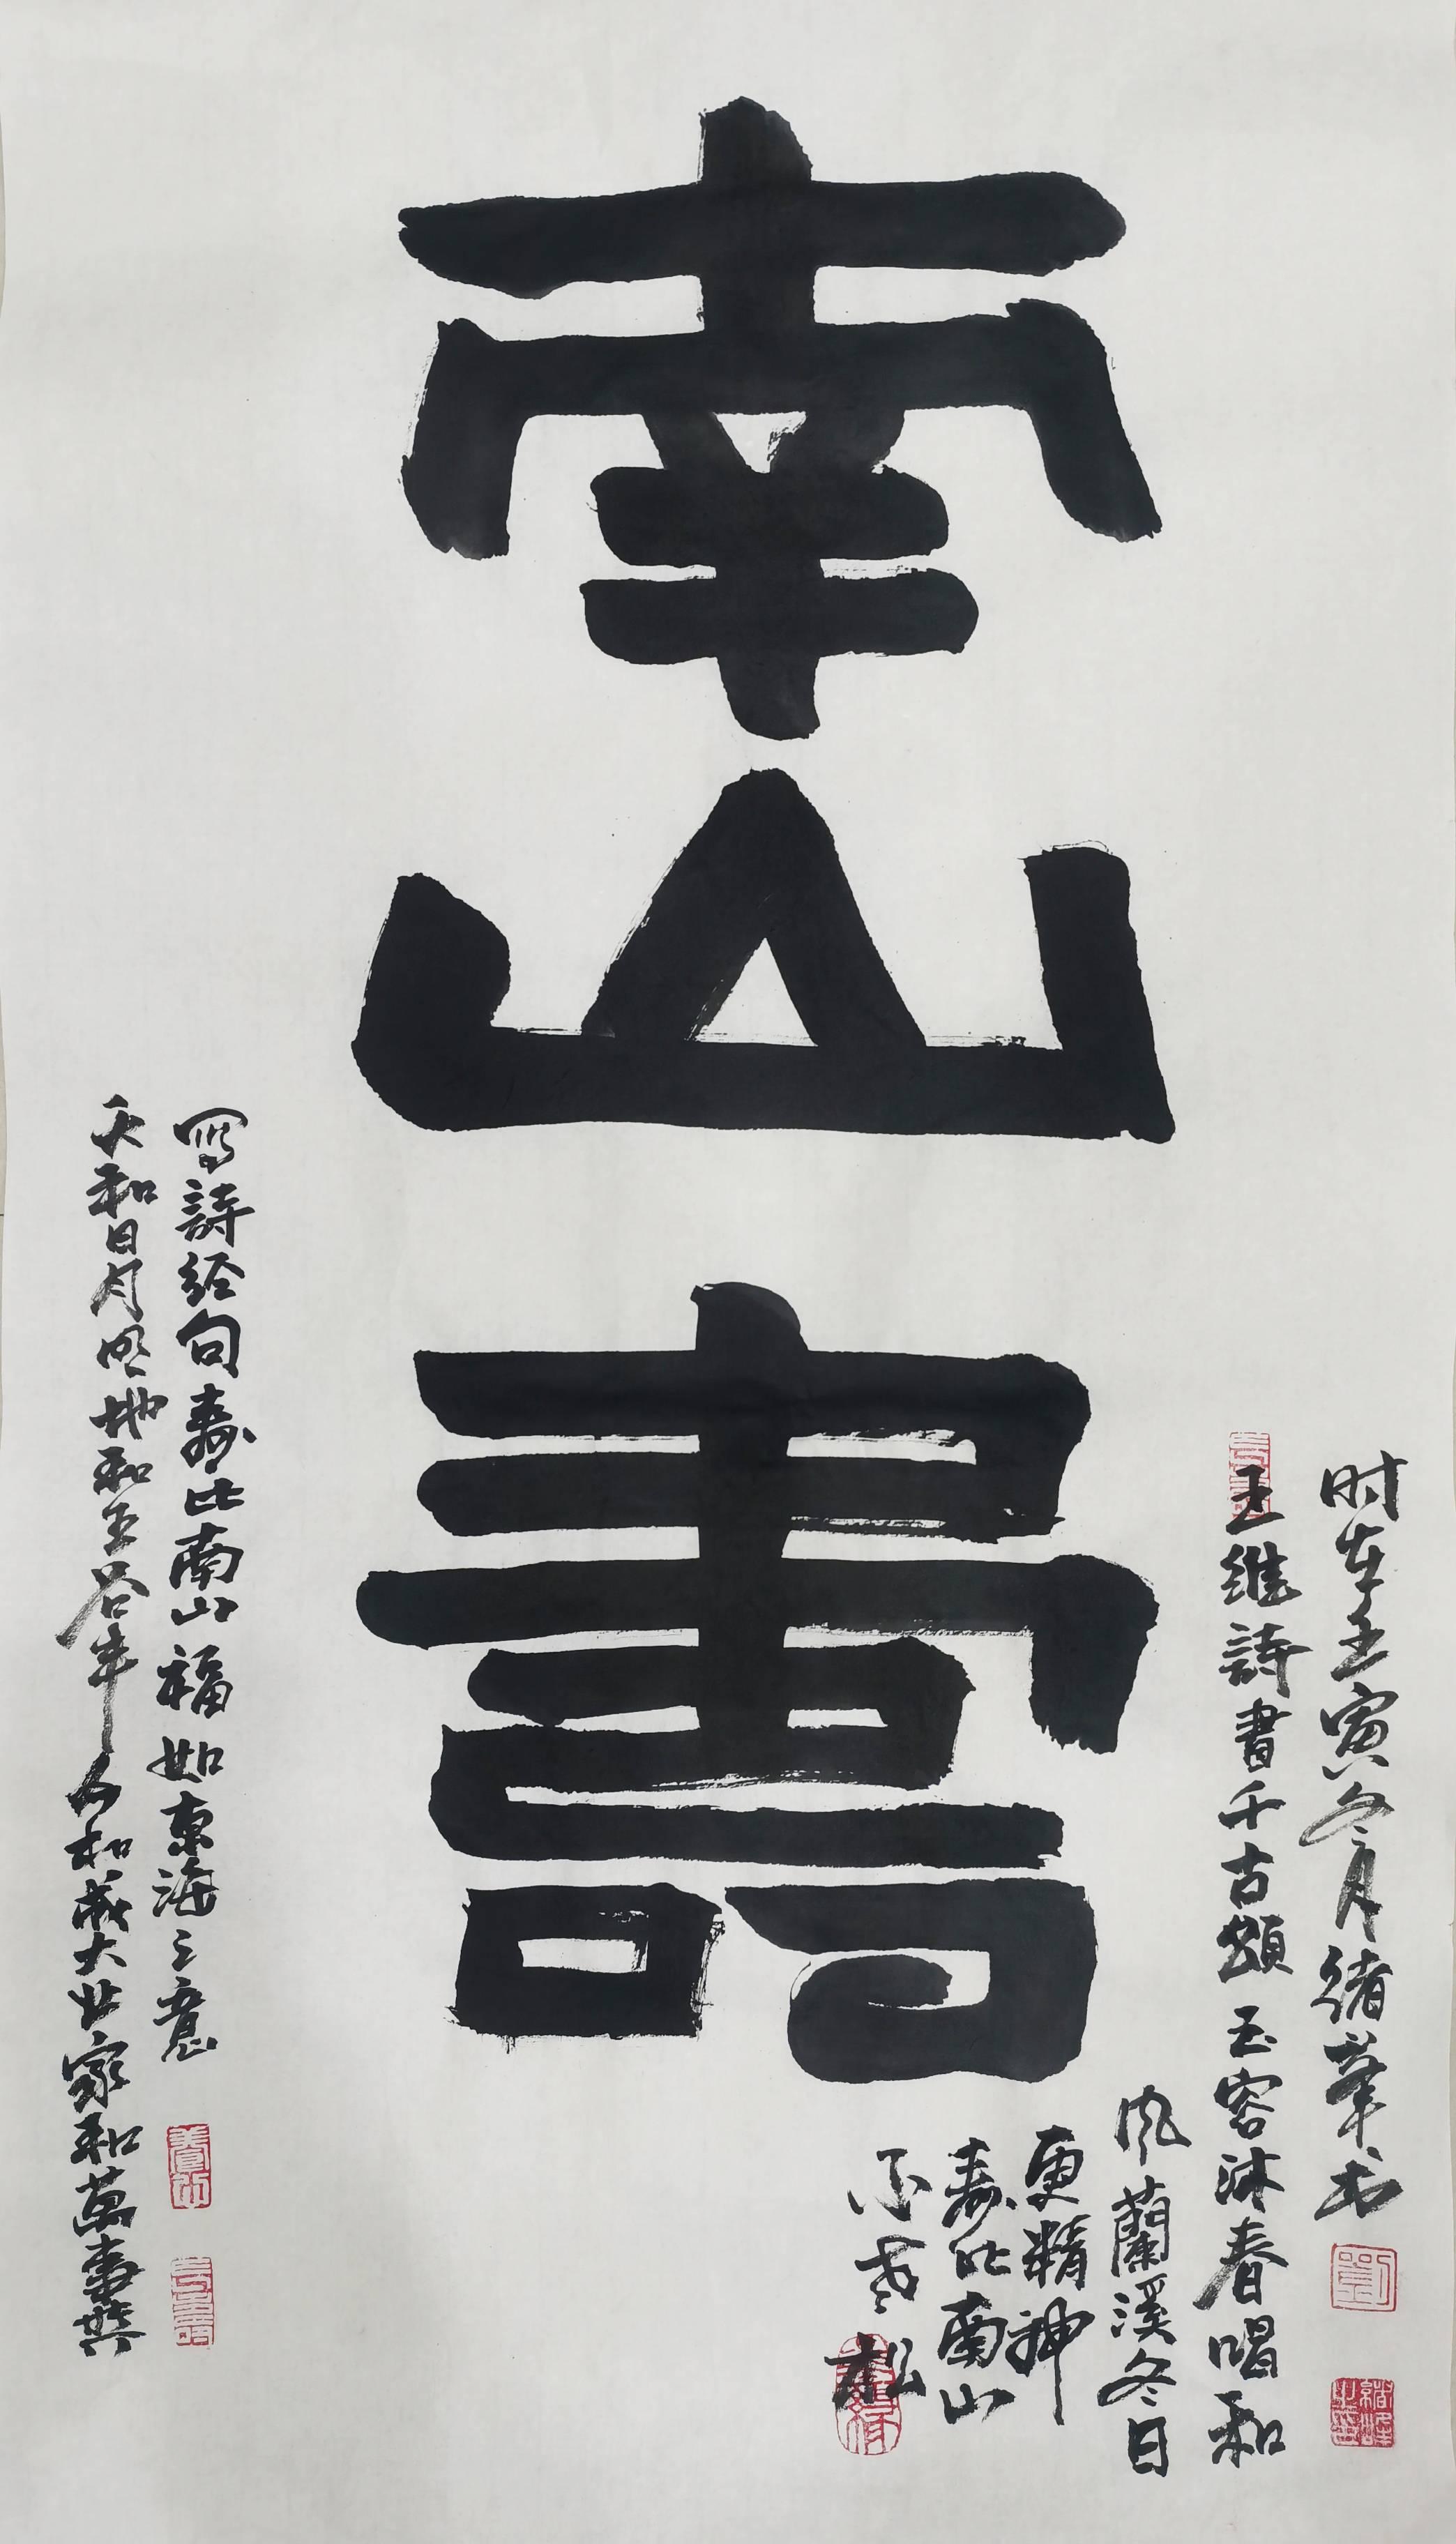 南山壽
时在壬寅冬月绪筆书
王维詩書千古頌玉容沐春唱和
风蘭溪冬日
更精神
壽比南山
不老松
寫詩经句壽比南山福如東海之意
天和日月明地和五谷丰人和成大业家和萬事興